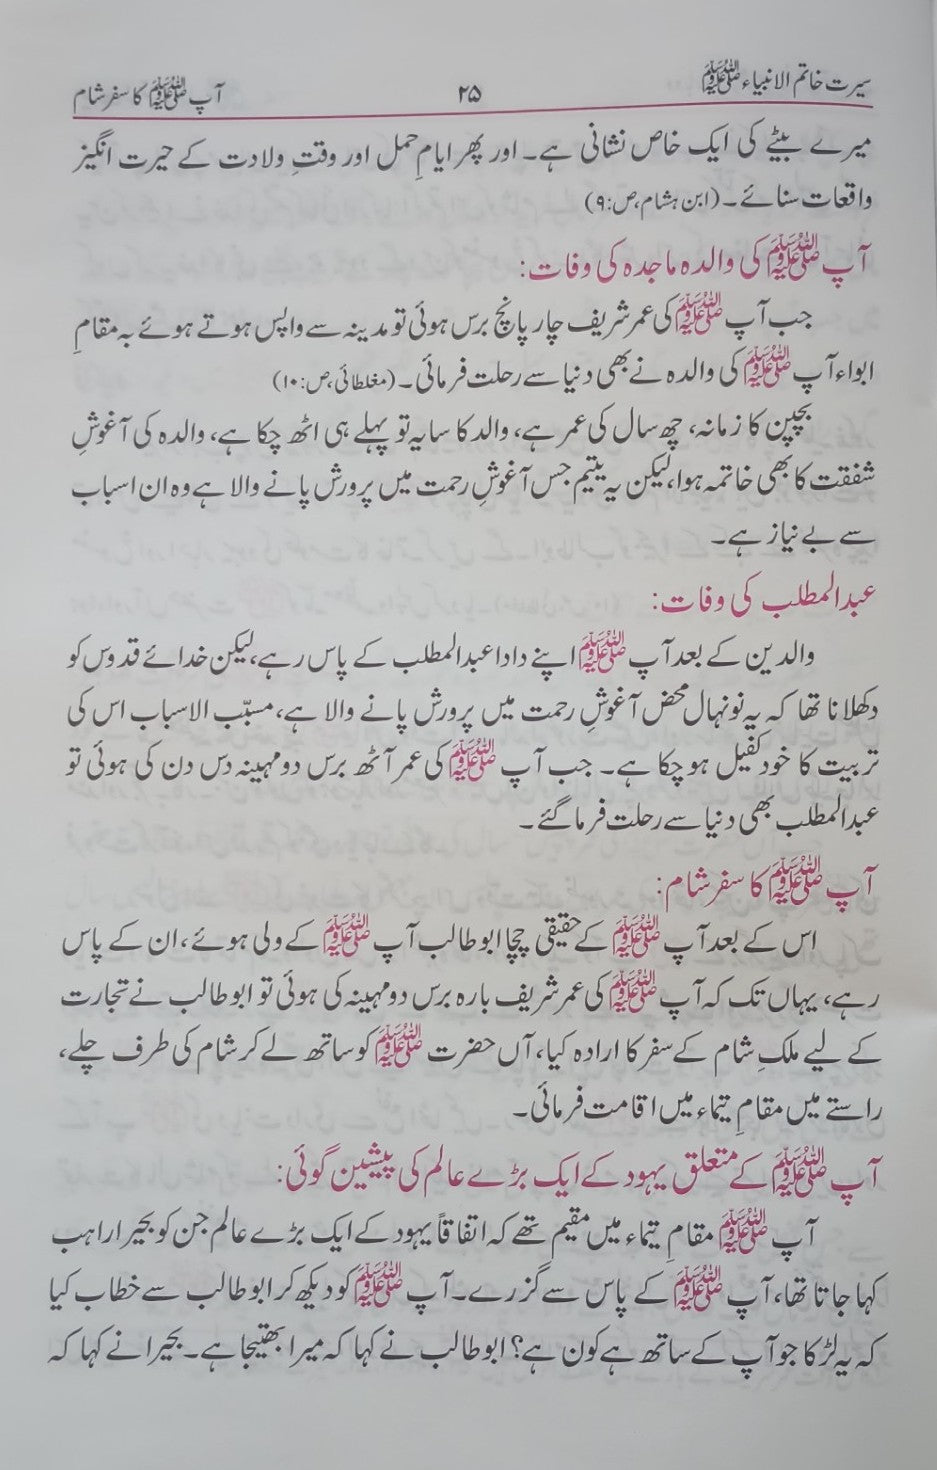 سیرت خاتم الانبیاء ﷺ ۲۵ آپ ﷺ کا سفر شام
میرے بیٹے کی ایک خاص نشانی ہے۔ اور پھر ایامِ حمل اور وقتِ ولادت کے حیرت انگیز
واقعات سنائے۔ (ابن ہشام، ص:۹)
آپ ﷺ کی والدہ ماجدہ کی وفات:
جب آپ ﷺ کی عمر شریف چار پانچ برس ہوئی تو مدینہ سے واپس ہوتے ہوئے بہ مقامِ
ابواء آپ ﷺ کی والدہ نے بھی دنیا سے رحلت فرمائی۔ (مغلطائی، ص:۱۰)
بچپن کا زمانہ، چھ سال کی عمر ہے، والد کا سایہ تو پہلے ہی اٹھ چکا ہے، والدہ کی آغوشِ
شفقت کا بھی خاتمہ ہوا، لیکن یہ یتیم جس آغوشِ رحمت میں پرورش پانے والا ہے وہ ان اسباب
سے بے نیاز ہے۔
عبدالمطلب کی وفات:
والدین کے بعد آپ ﷺ اپنے دادا عبدالمطلب کے پاس رہے، لیکن خدائے قدوس کو
دکھلانا تھا کہ یہ نونہال محض آغوشِ رحمت میں پرورش پانے والا ہے، مسبّب الاسباب اس کی
تربیت کا خود کفیل ہو چکا ہے۔ جب آپ ﷺ کی عمر آٹھ برس دو مہینہ دس دن کی ہوئی تو
عبدالمطلب بھی دنیا سے رحلت فرما گئے۔
آپ ﷺ کا سفر شام:
اس کے بعد آپ ﷺ کے حقیقی چچا ابوطالب آپ ﷺ کے ولی ہوئے، ان کے پاس
رہے، یہاں تک کہ آپ ﷺ کی عمر شریف بارہ برس دو مہینہ کی ہوئی تو ابوطالب نے تجارت
کے لیے ملکِ شام کے سفر کا ارادہ کیا، آں حضرت ﷺ کو ساتھ لے کر شام کی طرف چلے،
راستے میں مقامِ تیماء میں اقامت فرمائی۔
آپ ﷺ کے متعلق یہود کے ایک بڑے عالم کی پیشین گوئی:
آپ ﷺ مقامِ تیماء میں مقیم تھے کہ اتفاقاً یہود کے ایک بڑے عالم جن کو بحیرا راہب
کہا جاتا تھا، آپ ﷺ کے پاس سے گزرے۔ آپ ﷺ کو دیکھ کر ابوطالب سے خطاب کیا
کہ یہ لڑکا جو آپ کے ساتھ ہے کون ہے؟ ابوطالب نے کہا کہ میرا بھتیجا ہے۔ بحیرا نے کہا کہ